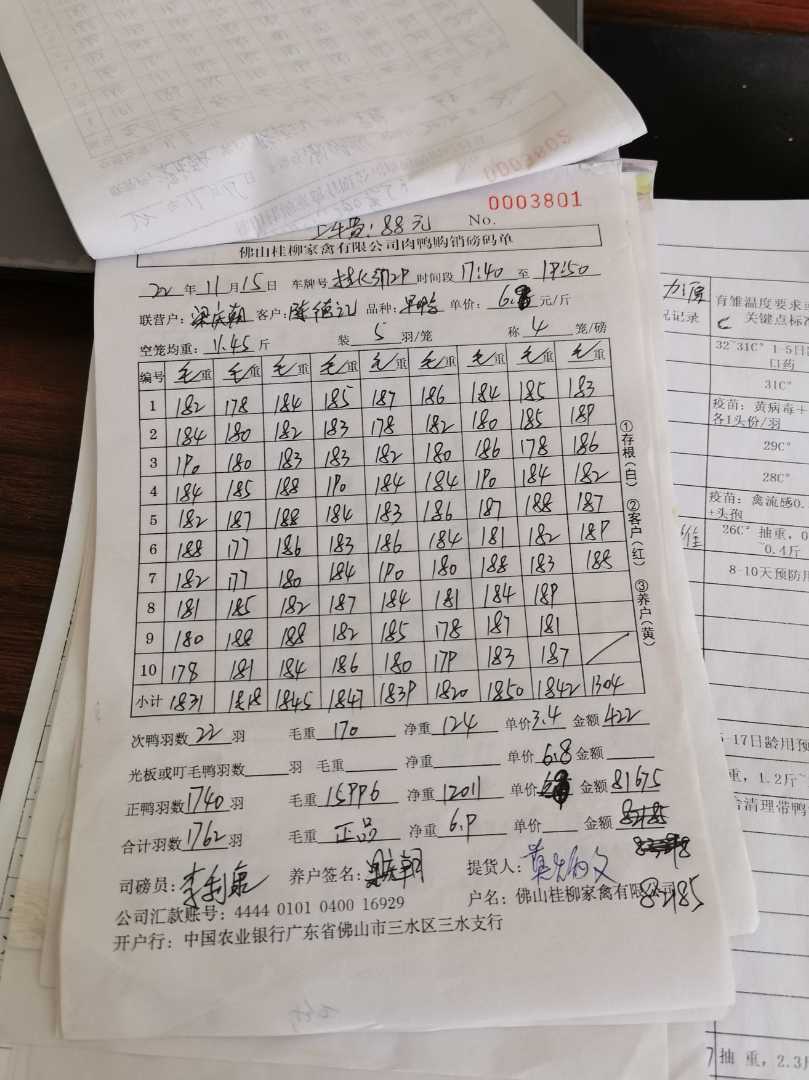 0003805
0003801
工费:88元 No.
佛山桂柳家禽有限公司肉鸭购销磅码单
22年11月15日 车牌号 时间段 17:40 至 19:50
联营户: 梁庆朝 客户: 陈德记 品种: 单价: 6.8 元/斤
空笼均重: 11.45 斤 装 5 羽/笼 称 4 笼/磅
编号 毛重 毛重 毛重 毛重 毛重 毛重 毛重 毛重 毛重
1 182 178 184 185 187 186 184 185 183
2 184 180 182 183 178 182 180 185 189
3 190 180 183 183 182 180 186 178 186
4 184 185 188 190 184 184 190 184 182
5 182 187 188 184 183 186 187 188 187
6 188 177 186 183 186 184 181 182 189
7 182 177 180 184 190 180 188 183 188
8 181 185 182 187 184 181 184 189
9 180 188 188 182 185 178 187 181
10 178 181 184 186 180 179 183 187
小计 1831 1818 1845 1847 1839 1820 1850 1842 1304
①存根(白) ②客户(红) ③养户(黄)
次鸭羽数 22 羽 毛重 170 净重 124 单价 3.4 金额 422
光板或叮毛鸭羽数 羽 毛重 净重 单价 6.8 金额
正鸭羽数 1740 羽 毛重 15996 净重 12011 单价 金额 81675
合计羽数 1762 羽 毛重 正品 净重 6.9 单价 金额 82185
司磅员: 养户签名: 梁庆朝 提货人:
公司汇款账号: 4444 0101 0400 16929 户名: 佛山桂柳家禽有限公司 82185
开户行: 中国农业银行广东省佛山市三水区三水支行
记录
有雏温度要求
关键点标
32~31C° 1-5日
口药
31C°
疫苗: 黄病毒+
各1头份/羽
29C°
28C°
疫苗: 禽流感0.
+头孢
26C° 抽重, 0
~0.4斤
8-10天预防用
-17日龄用预
重, 1.2斤~
合清理带鸭
抽 重, 2.3